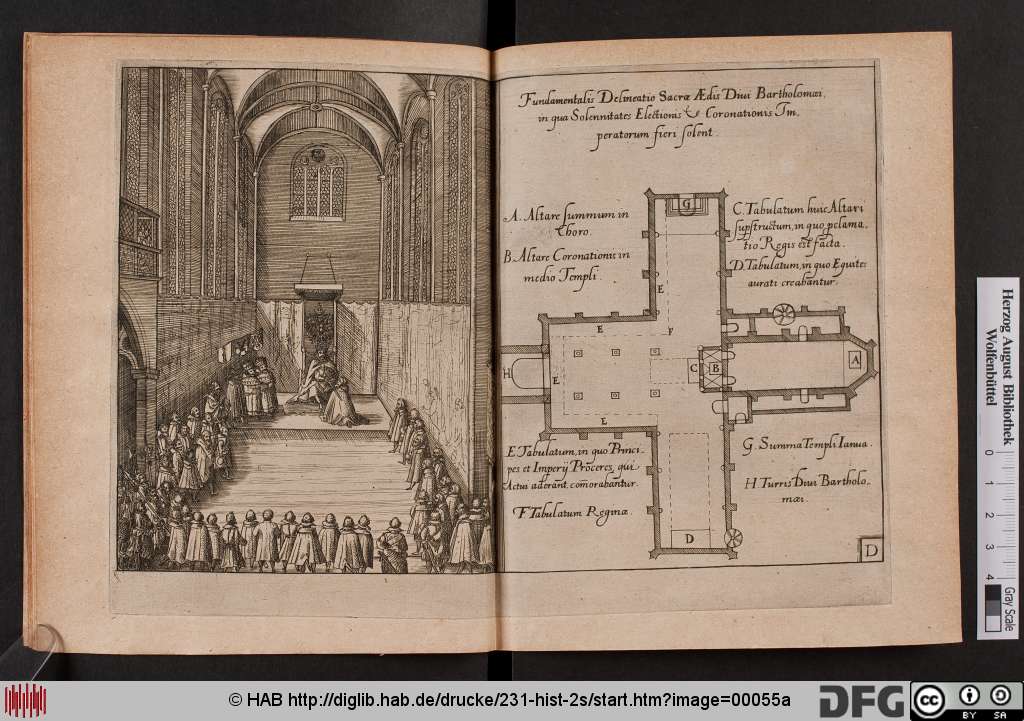 Fundamentalis Delineatio Sacræ Ædis Diui Bartholomæi,
in qua Solennitates Electionis & Coronationis Im,
peratorum fieri solent.
A. Altare summum in
Choro.
B. Altare Coronationis in
medio Templi.
C. Tabulatum huic Altari
supstructum, in quo pclama,
tio Regis est facta.
D. Tabulatum, in quo Equites
aurati creabantur.
G
E
E
F
H
E
C
B
A
E
D
E Tabulatum, in quo Princi,
pes et Imperij Proceres, qui
Actui aderant, comorabantur.
F Tabulatum Reginæ.
G. Summa Templi Ianua.
H Turris Diui Bartholo,
mæi.
D
Herzog August Bibliothek
Wolfenbüttel
0
1
2
3
4
Gray Scale
© HAB http://diglib.hab.de/drucke/231-hist-2s/start.htm?image=00055a
DFG
cc
BY SA